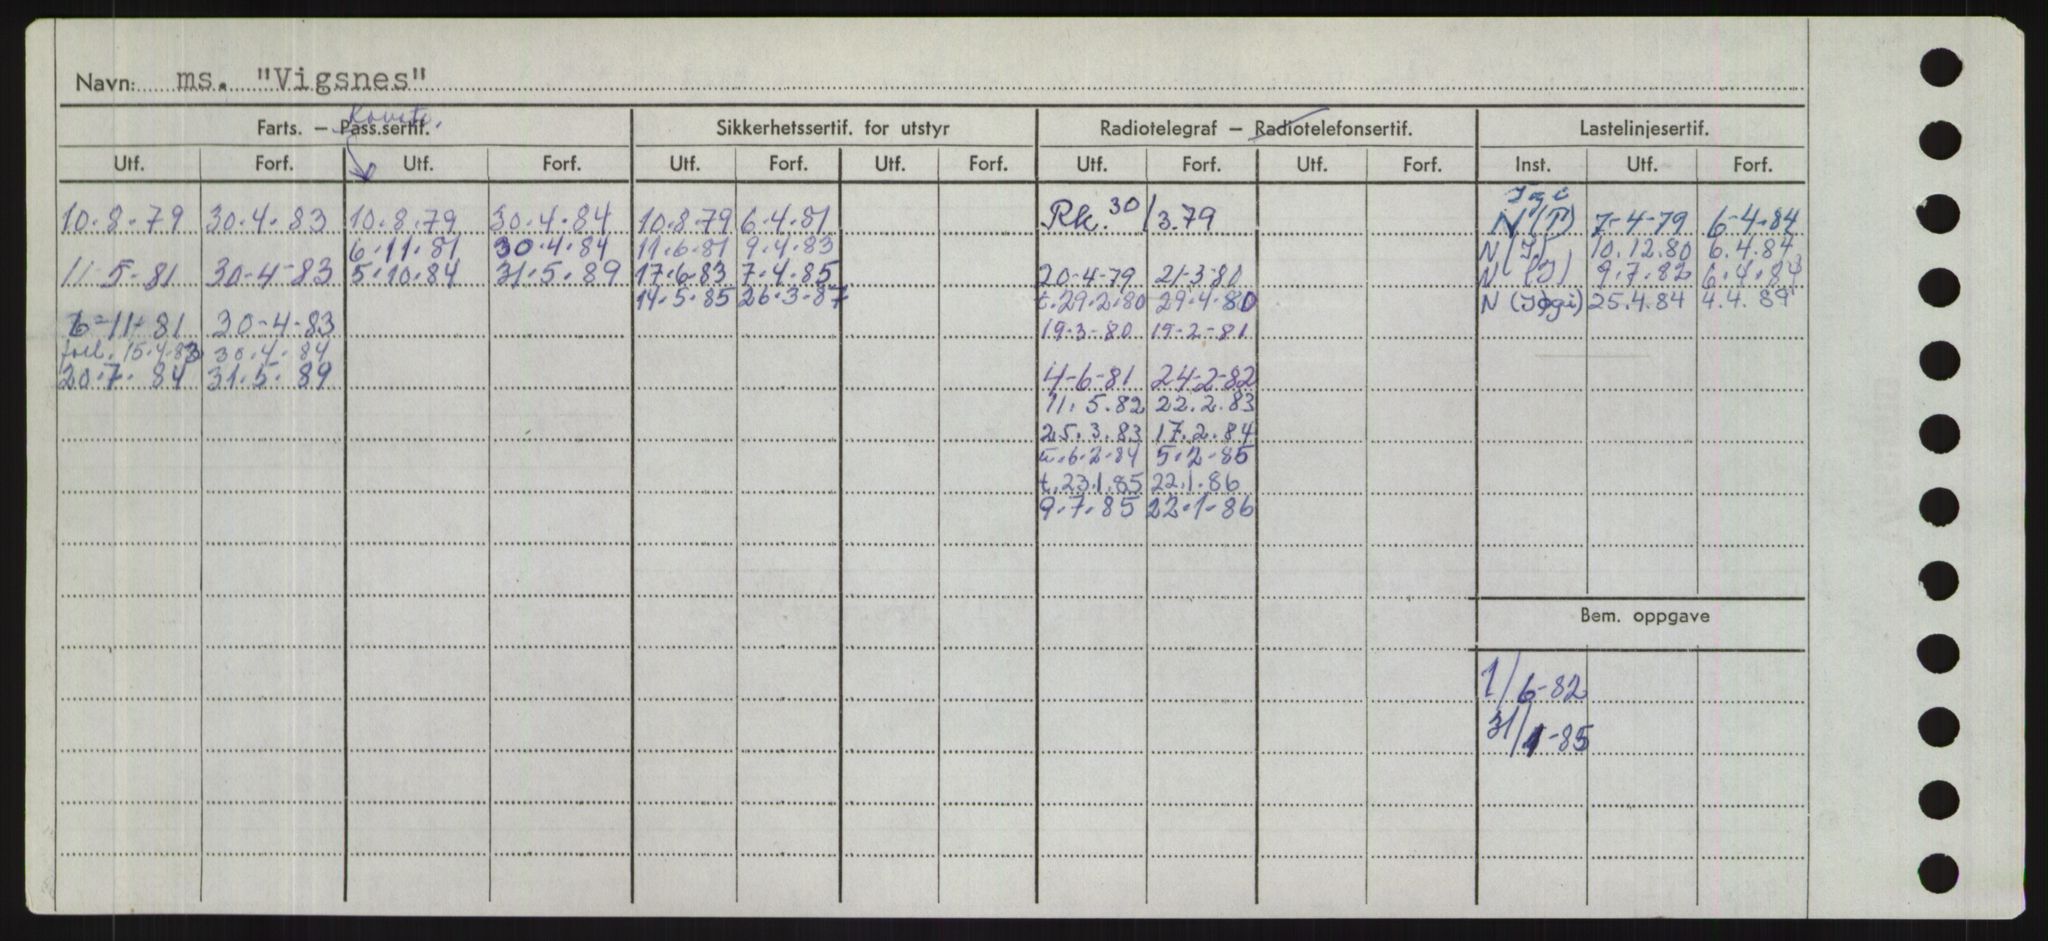 Navn: ms. "Vigsnes"
Konstr.
Farts. – Pass.sertif. Sikkerhetssertif. for utstyr Radiotelegraf – Radiotelefonsertif. Lastelinjesertif.
Utf. Forf. Utf. Forf. Utf. Forf. Utf. Forf. Utf. Forf. Utf. Forf. Inst. Utf. Forf.
10.8.79 30.4.83 10.8.79 30.4.84 10.8.79 6.4.81 Rk. 30/3.79 N (T) 7-4-79 6-4-84
6.11.81 30.4.84 11.6.81 9.4.83 N (I) 10.12.80 6.4.84
11-5-81 30-4-83 5.10.84 31.5.89 17.6.83 7.4.85 20-4-79 21-3-80 N (I) 9.7.82 6.4.84
14.5.85 26.3.87 t.29.2.80 29.4.80 N 25.4.84 4.4.89
6-11-81 30-4-83 19-3-80 19-2-81
forl. 15.4.83 30.4.84
20.7.84 31.5.89 4-6-81 24-2-82
11.5.82 22.2.83
25.3.83 17.2.84
t.6.2.84 5.2.85
t.23.1.85 22.1.86
9.7.85 22.1.86
Bem. oppgave
1/6-82
31/1-85